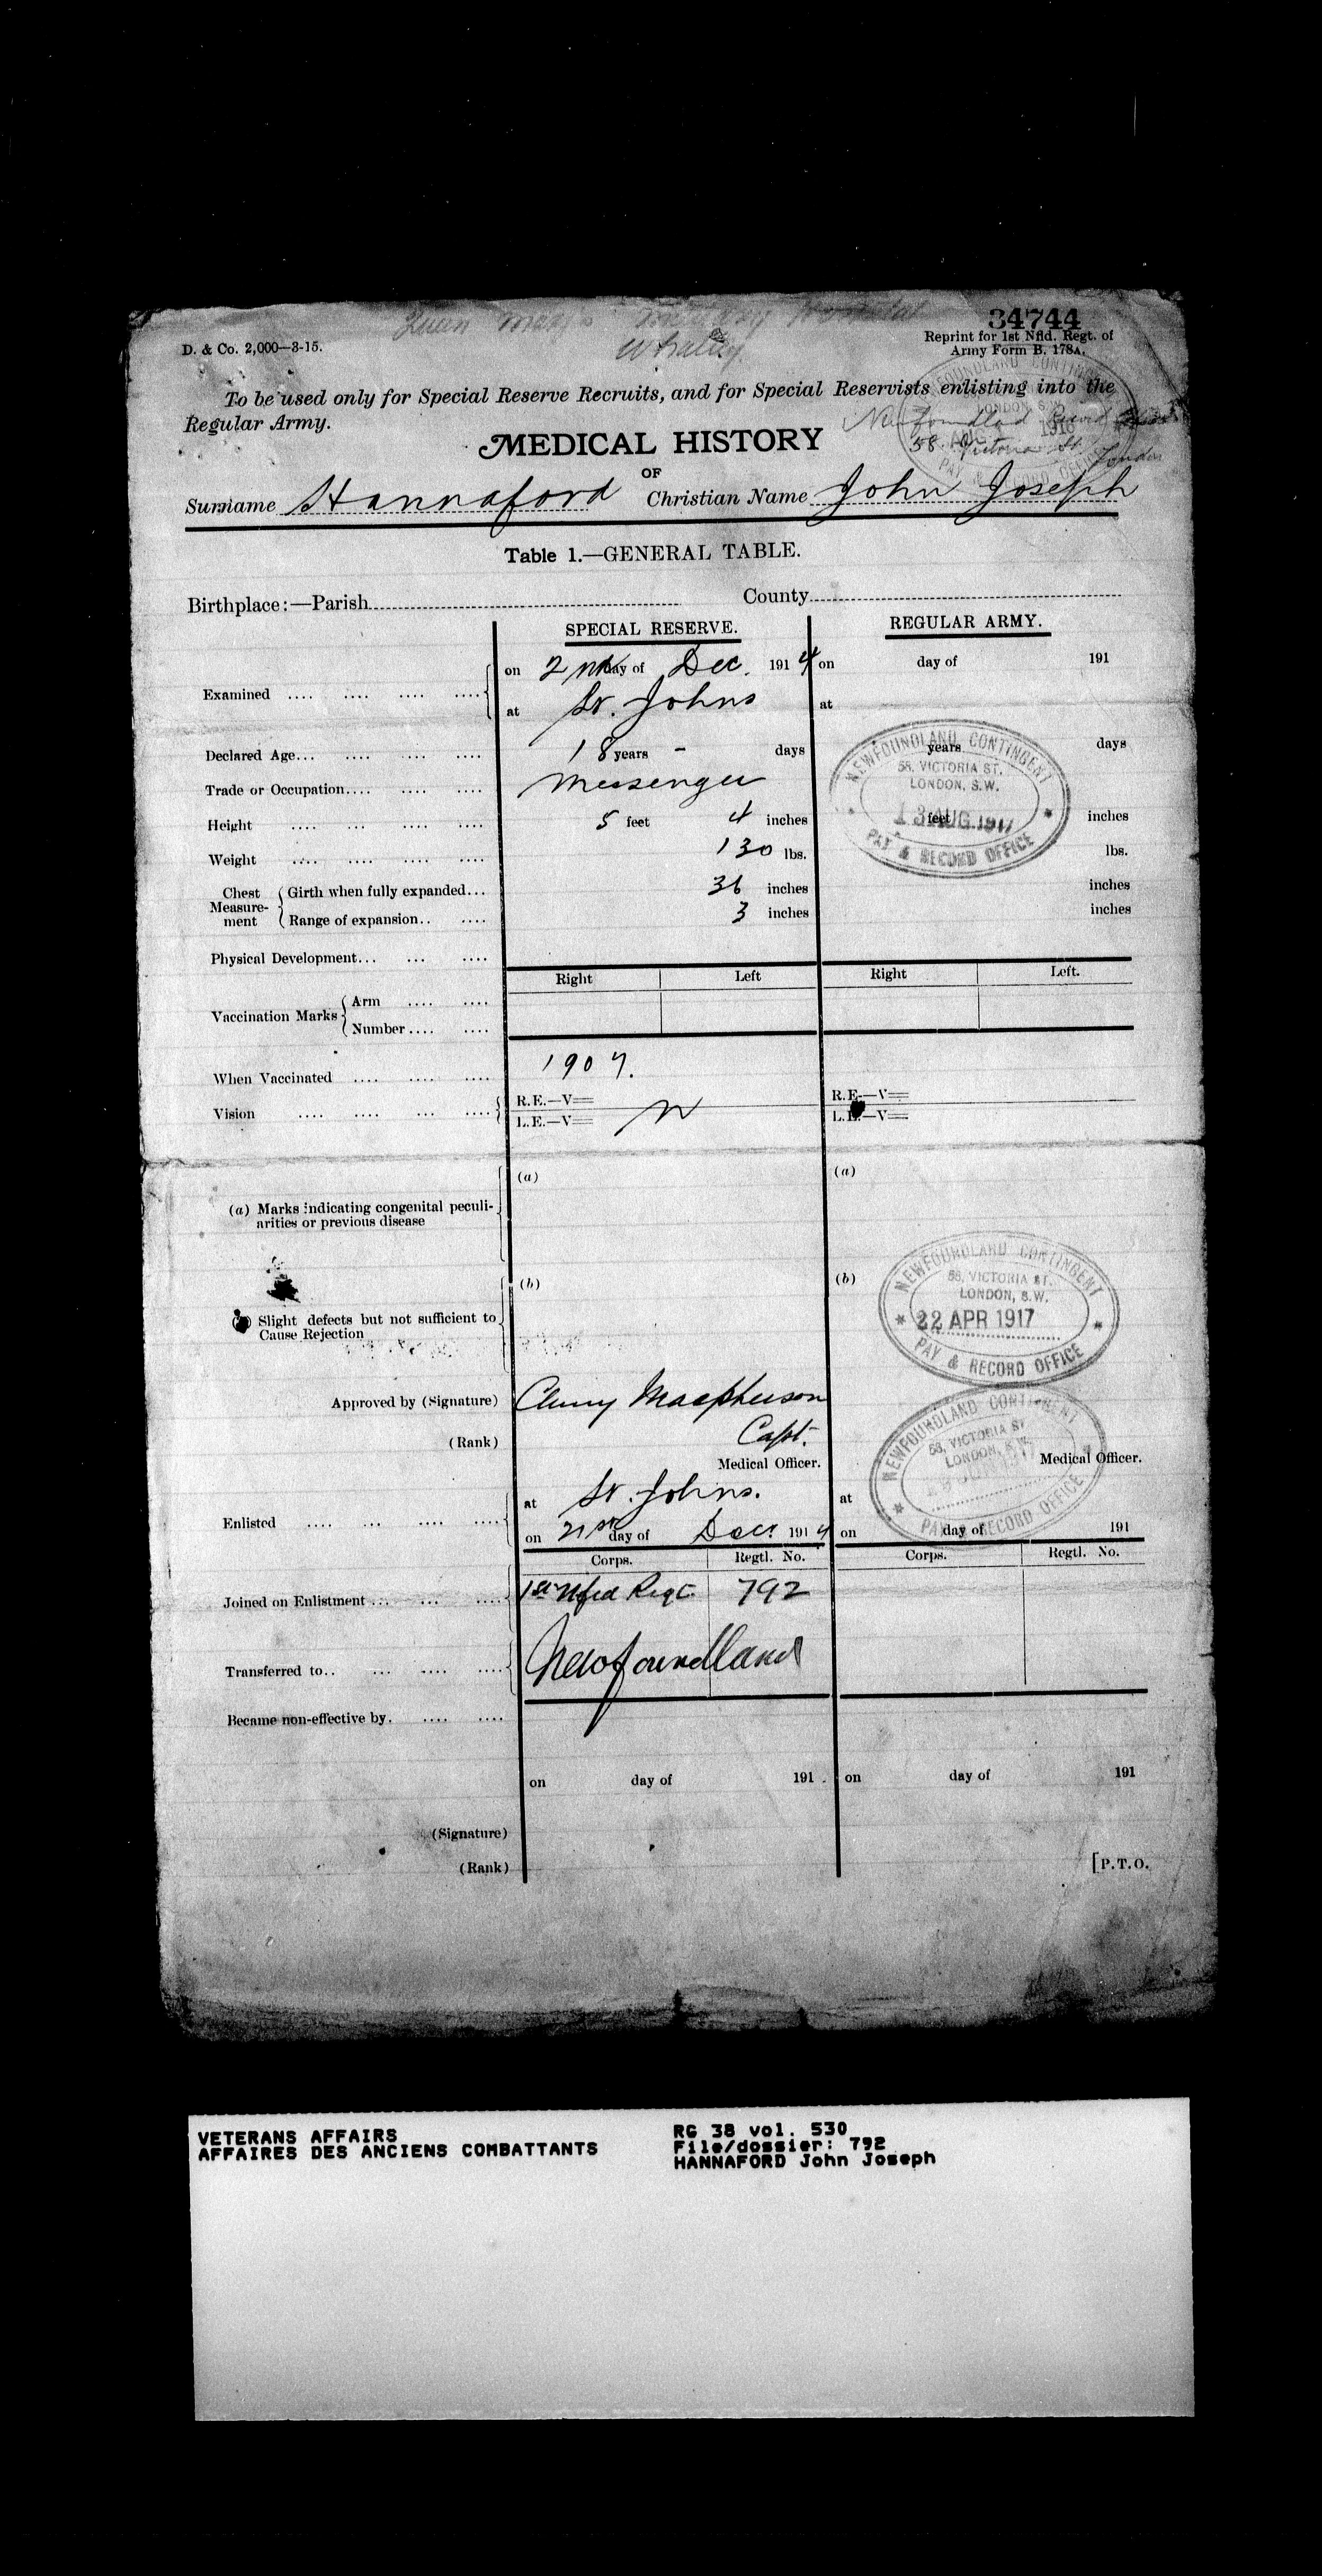 34744
D. & Co. 2,000—3-15.
Reprint for 1st Nfld. Regt. of
Army Form B. 178A.
Queen Mary's Military Hospital
Whalley
To be used only for Special Reserve Recruits, and for Special Reservists enlisting into the
Regular Army.
Newfoundland Record
58 Victoria St. London
MEDICAL HISTORY
OF
Surname Hannaford Christian Name John Joseph
Table 1.—GENERAL TABLE.
Birthplace:—Parish County
SPECIAL RESERVE. REGULAR ARMY.
Examined on 2nd day of Dec. 1914 on day of 191
at St. Johns at
Declared Age 18 years - days years days
Trade or Occupation Messenger
Height 5 feet 4 inches feet inches
Weight 130 lbs. lbs.
Chest Measurement Girth when fully expanded 36 inches inches
Range of expansion 3 inches inches
NEWFOUNDLAND CONTINGENT
58, VICTORIA ST.
LONDON, S.W.
13 AUG 1917
PAY & RECORD OFFICE
Physical Development
Right Left Right Left.
Vaccination Marks Arm
Number
When Vaccinated 1907.
Vision R.E.—V= R.E.—V=
L.E.—V= N L.E.—V=
(a) (a)
(a) Marks indicating congenital peculi-
arities or previous disease
(b) (b)
Slight defects but not sufficient to
Cause Rejection
NEWFOUNDLAND CONTINGENT
58, VICTORIA ST.
LONDON, S.W.
22 APR 1917
PAY & RECORD OFFICE
Approved by (Signature) Cluny Macpherson
(Rank) Capt.
Medical Officer. Medical Officer.
NEWFOUNDLAND CONTINGENT
58, VICTORIA ST.
LONDON, S.W.
PAY & RECORD OFFICE
Enlisted at St. Johns. at
on 21st day of Dec. 1914 on day of 191
Corps. Regtl. No. Corps. Regtl. No.
Joined on Enlistment 1st Nfld Regt. 792
Transferred to Newfoundland
Became non-effective by
on day of 191 on day of 191
(Signature)
(Rank)
[P.T.O.
VETERANS AFFAIRS
AFFAIRES DES ANCIENS COMBATTANTS
RG 38 vol. 530
File/dossier: 792
HANNAFORD John Joseph